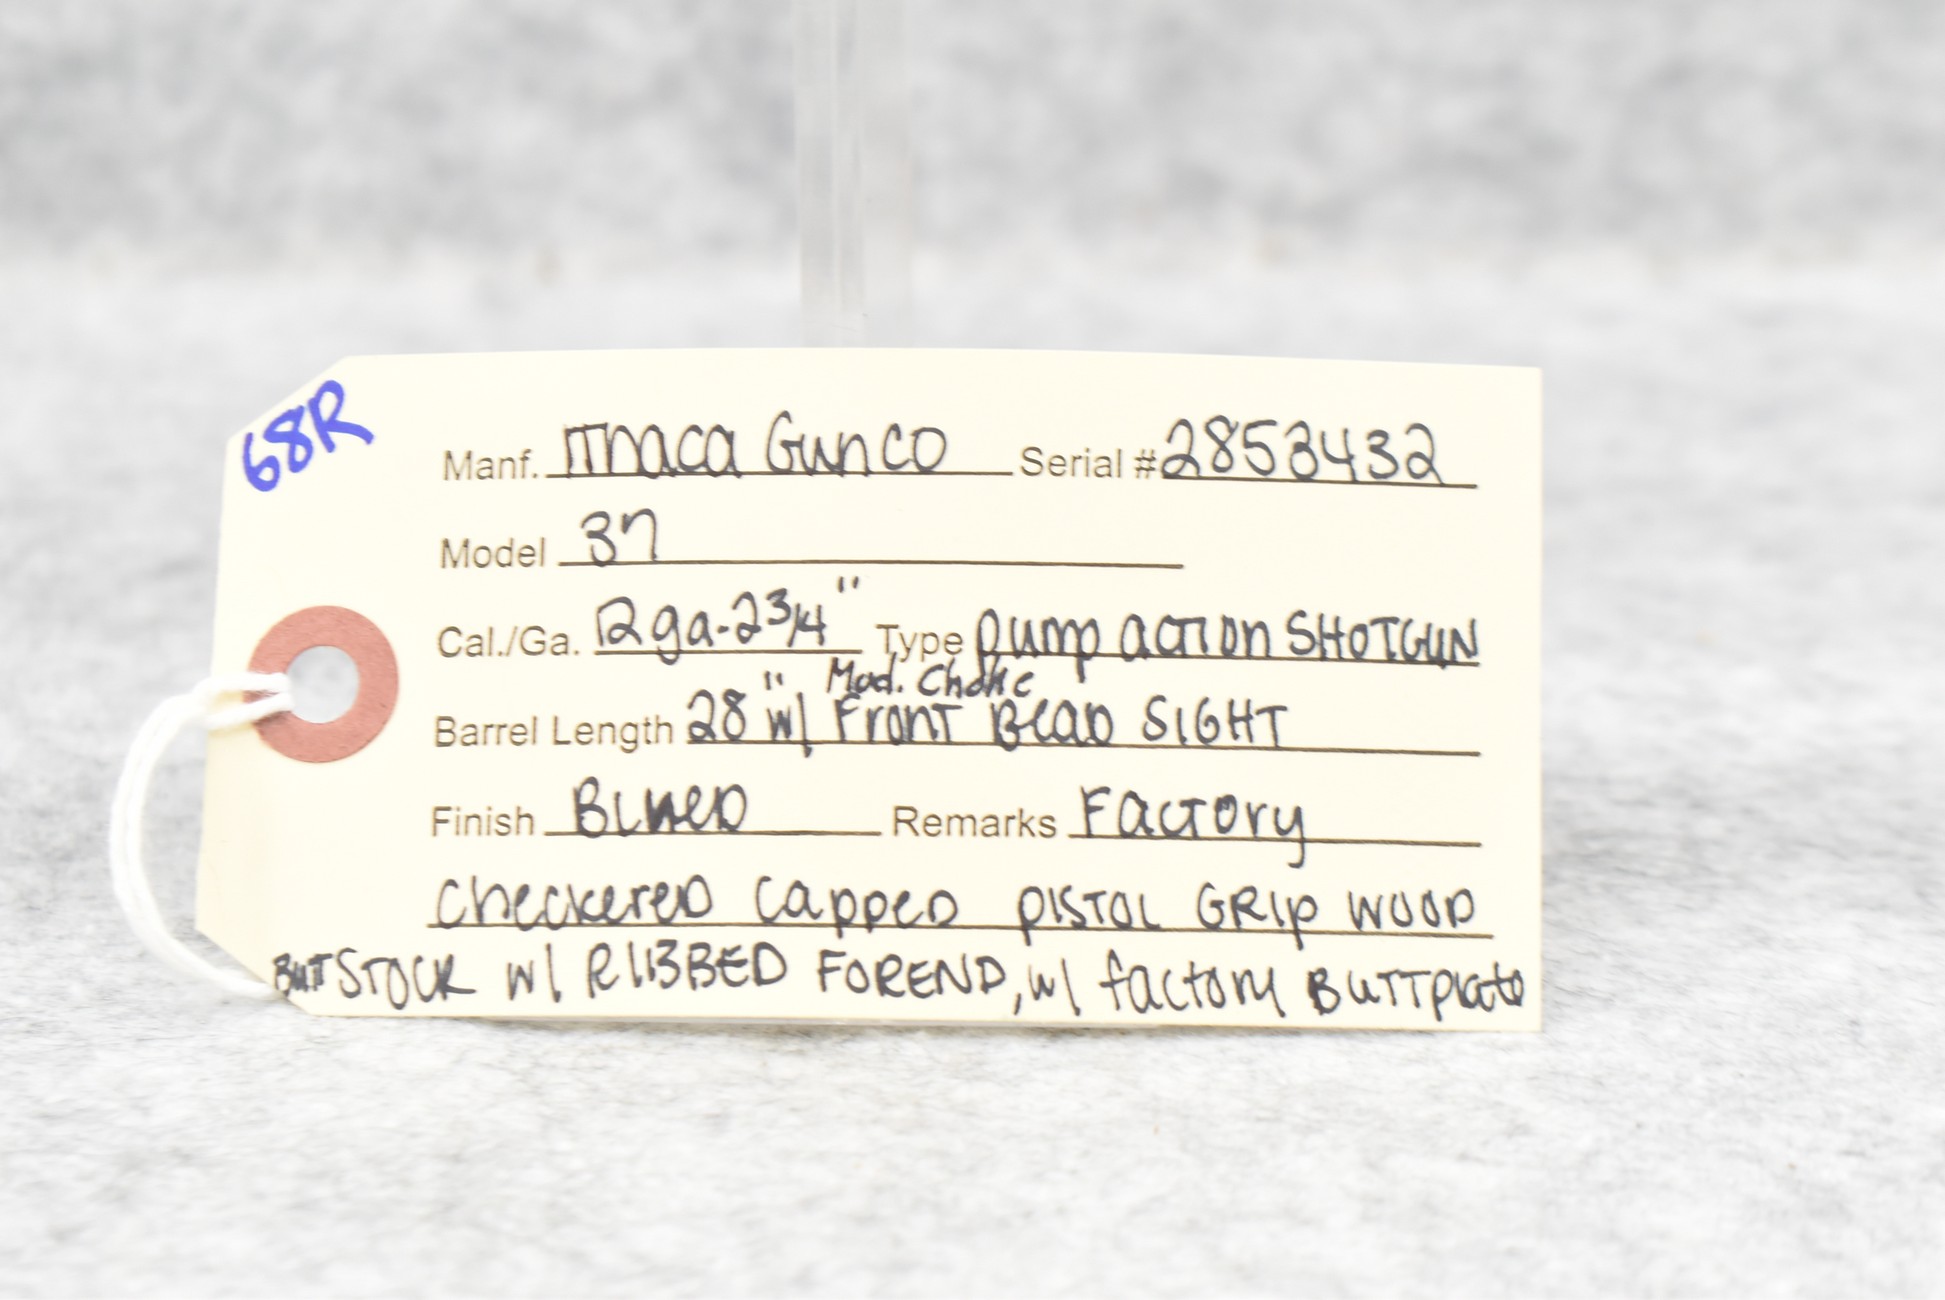 68R
Manf. Ithaca Gun Co Serial # 2853432
Model 37
Cal./Ga. 12ga-2 3/4" Type Pump action SHOTGUN
Mod. Choke
Barrel Length 28" w/ Front Bead SIGHT
Finish Blued Remarks Factory
Checkered capped PISTOL GRIP WOOD
BUTTSTOCK w/ RIBBED FOREND, w/ factory BUTTplate